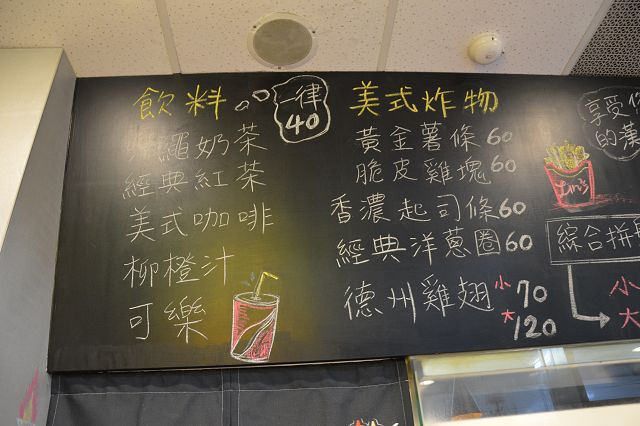 飲料
一律
40
繩奶茶
經典紅茶
美式咖啡
柳橙汁
可樂
美式炸物
黃金薯條60
脆皮雞塊60
香濃起司條60
經典洋蔥圈60
德州雞翅 小70
大120
享受
的漢
綜合拼
小
大